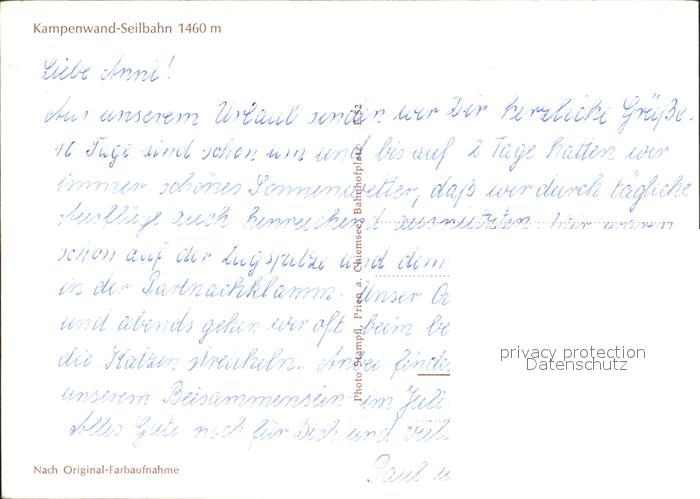 Kampenwand-Seilbahn 1460 m
Liebe Anni!
Aus unserem Urlaub senden wir Dir herzliche Grüße.
16 Tage sind schon um und bis auf 2 Tage hatten wir
immer schönes Sonnenwetter, daß wir durch tägliche
Ausflüge auch hinreichend ausnützten. Wir waren
schon auf der Zugspitze und dem
in der Partnachklamm. Unser
und abends gehen wir oft beim
die Katzen streicheln. Anbei
unserem Beisammensein im Juli.
Alles Gute noch für Dich und
Paul
Photo Stampfl, Prien a. Chiemsee, Bahnhofplatz
Nach Original-Farbaufnahme
privacy protection
Datenschutz